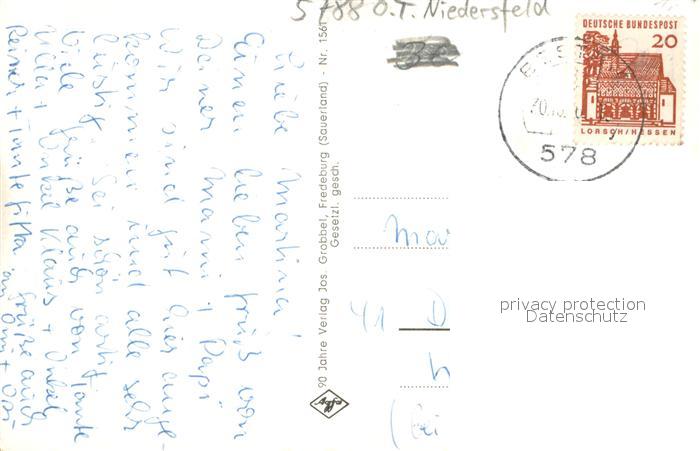 5788 O.T. Niedersfeld
DEUTSCHE BUNDESPOST
20
LORSCH/HESSEN
578
Liebe Martina!
Einen lieben Gruß von
Deiner Mammi + Papi
Wir sind gut hier ange-
kommen sind alle sehr
lustig. Sei schön artig
Viele Grüße auch von Tante
Ulla + Onkel Klaus + Onkel
Reiner + Tante Gitta
Grüße auch
an Omi + Opi
90 Jahre Verlag Jos. Grobbel, Fredeburg (Sauerland) - Nr. 1561
Gesetzl. gesch.
Mar
41 D
(bei
privacy protection
Datenschutz